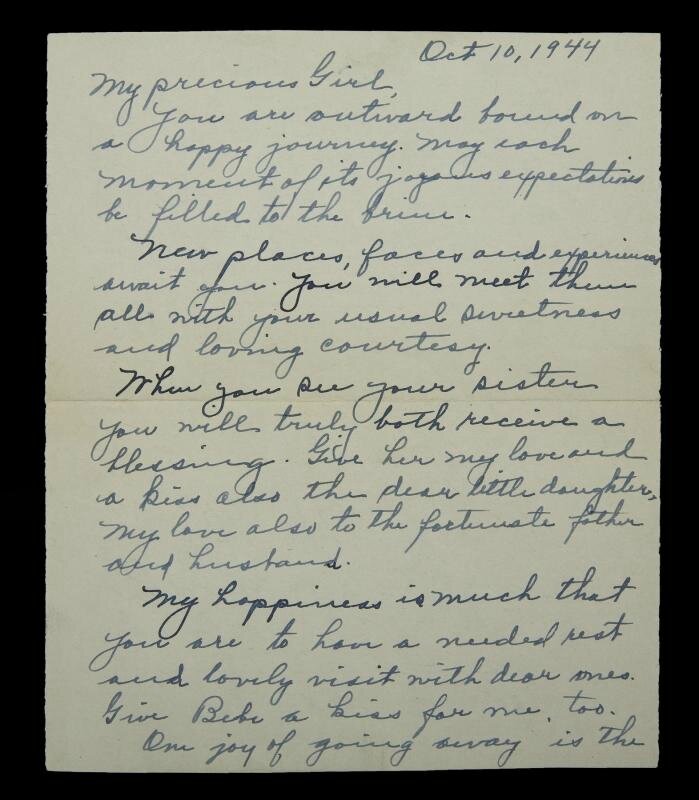 Oct 10, 1944
My precious Girl,
You are outward bound on
a happy journey. May each
moment of its joyous expectations
be filled to the brim.
New places, faces and experiences
await you. You will meet them
all with your usual sweetness
and loving courtesy.
When you see your sister
you will truly both receive a
blessing. Give her my love and
a kiss also the dear little daughter,
My love also to the fortunate father
and husband.
My happiness is much that
you are to have a needed rest
and lovely visit with dear ones.
Give Bebe a kiss for me, too.
One joy of going away is the